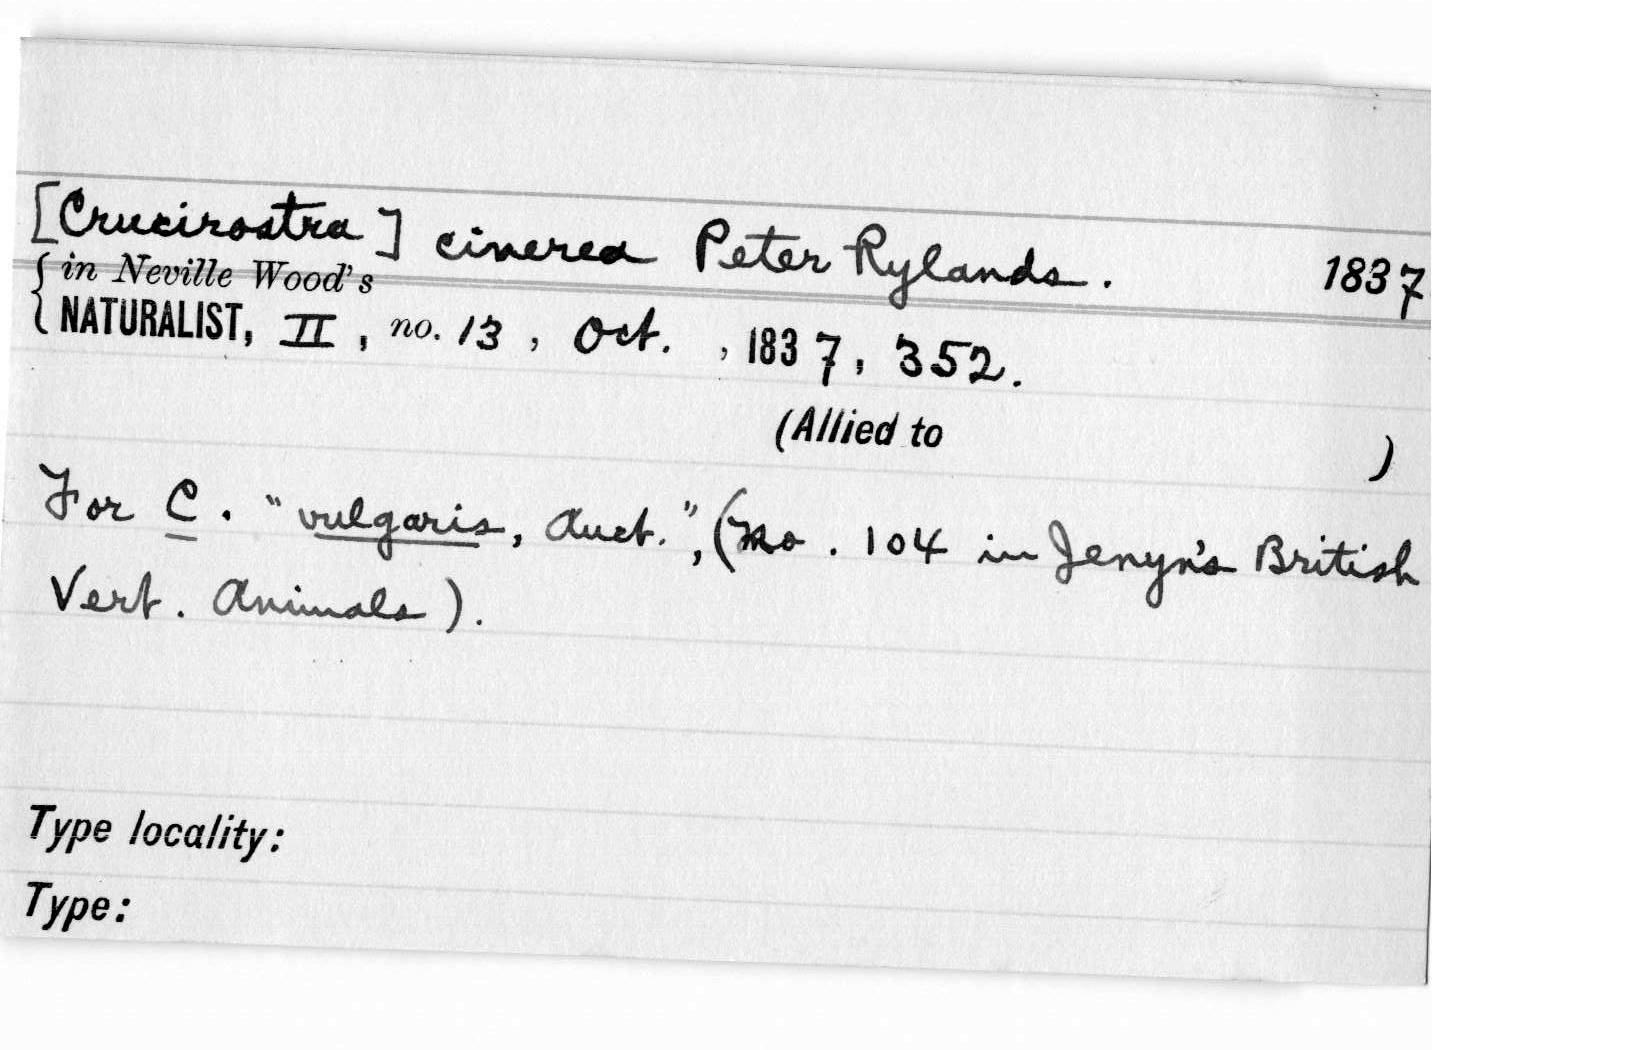 [Crucirostra] cinerea Peter Rylands. 1837
{in Neville Wood's
NATURALIST, II, no. 13, Oct. , 1837, 352.
(Allied to )
For C. "vulgaris, Auct.", (No. 104 in Jenyn's British
Vert. Animals).
Type locality:
Type: